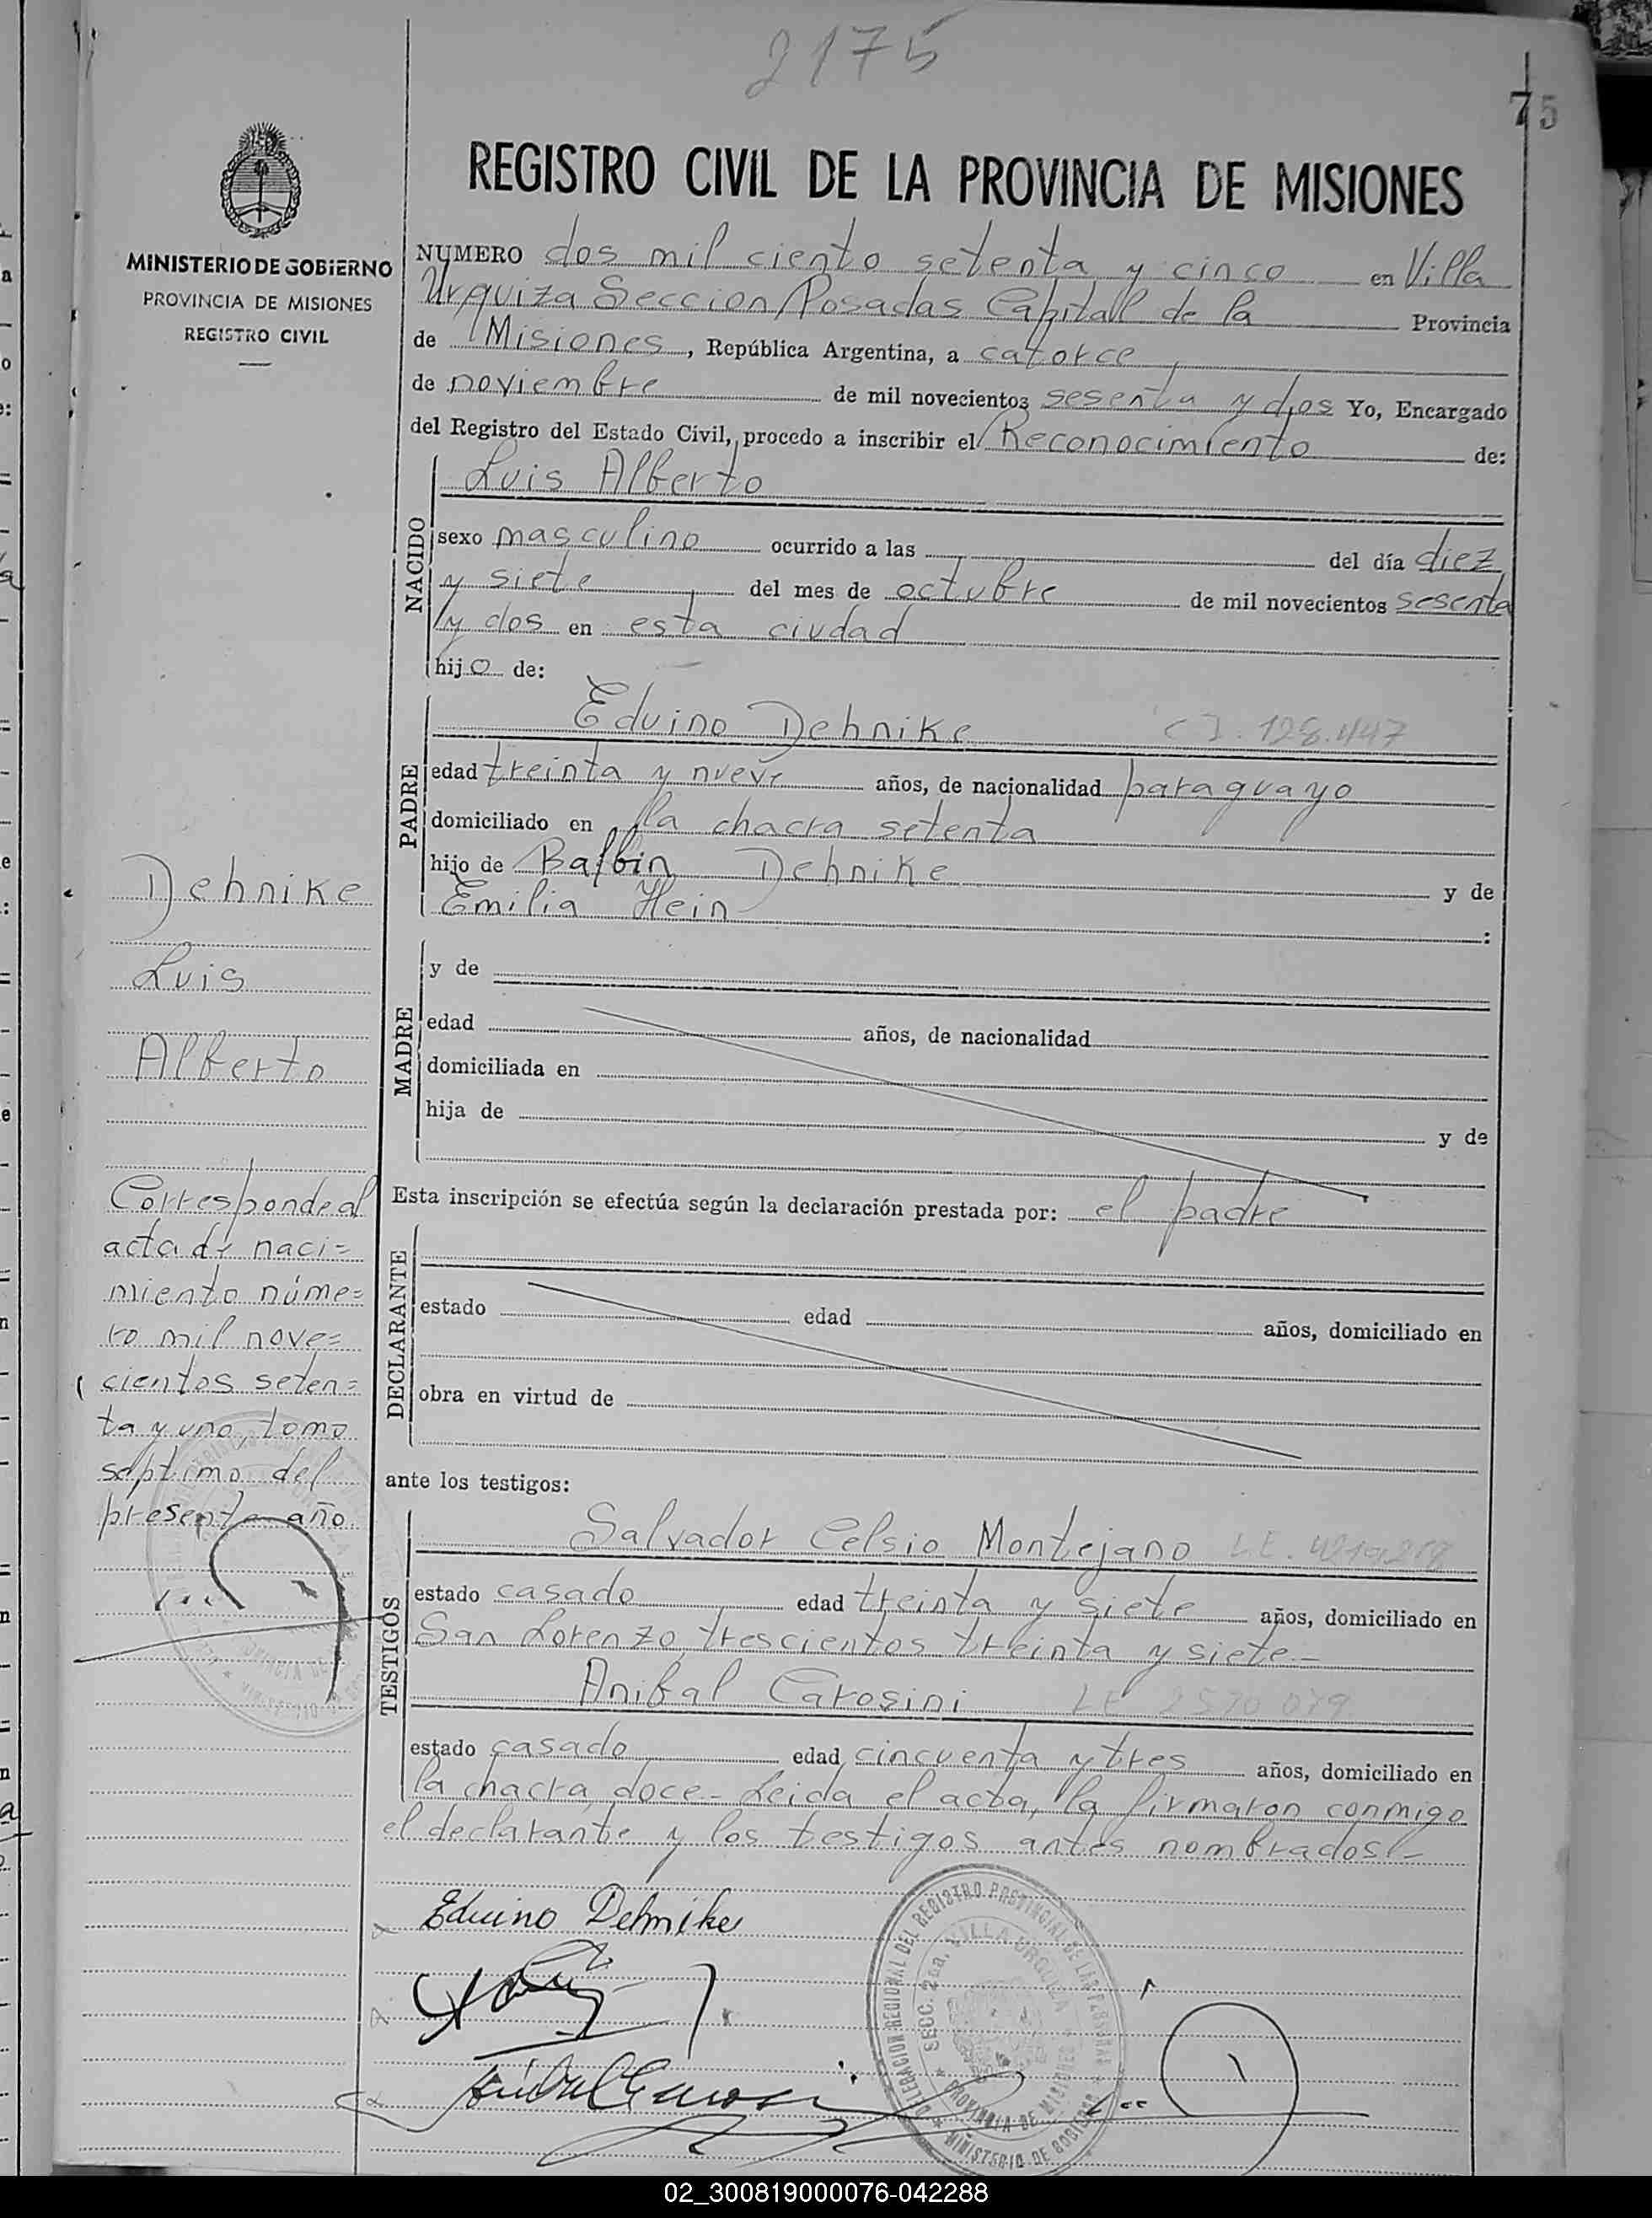 2175
75
REGISTRO CIVIL DE LA PROVINCIA DE MISIONES
MINISTERIO DE GOBIERNO
PROVINCIA DE MISIONES
REGISTRO CIVIL
NUMERO dos mil ciento setenta y cinco en Villa
Urquiza Seccion Posadas Capital de la Provincia
de Misiones, República Argentina, a catorce
de noviembre de mil novecientos sesenta y dos Yo, Encargado
del Registro del Estado Civil, procedo a inscribir el Reconocimiento de:
NACIDO
Luis Alberto
sexo masculino ocurrido a las del día diez
y siete del mes de octubre de mil novecientos sesenta
y dos en esta ciudad
hijo de:
PADRE
Eduino Dehnike CI. 128.447
edad treinta y nueve años, de nacionalidad paraguayo
domiciliado en la chacra setenta
hijo de Balbin Dehnike y de
Emilia Hein :
MADRE
y de
edad años, de nacionalidad
domiciliada en
hija de y de
Esta inscripción se efectúa según la declaración prestada por: el padre
DECLARANTE
estado edad años, domiciliado en
obra en virtud de
ante los testigos:
TESTIGOS
Salvador Celsio Montejano L.E.
estado casado edad treinta y siete años, domiciliado en
San Lorenzo, trescientos treinta y siete.-
Anibal Carosini LE 2570079
estado casado edad cincuenta y tres años, domiciliado en
la chacra doce.- Leida el acta, la firmaron conmigo
el declarante y los testigos antes nombrados.-
Dehnike
Luis
Alberto
Corresponde al
acta de naci=
miento núme=
ro mil nove=
cientos seten=
ta y uno, tomo
septimo del
presente año.
Eduino Dehnike
DELEGACION REGIONAL DEL REGISTRO PROVINCIAL DE LAS PERSONAS
SECC. 2da. VILLA URQUIZA
PROVINCIA DE MISIONES
MINISTERIO DE GOBIERNO
02_300819000076-042288